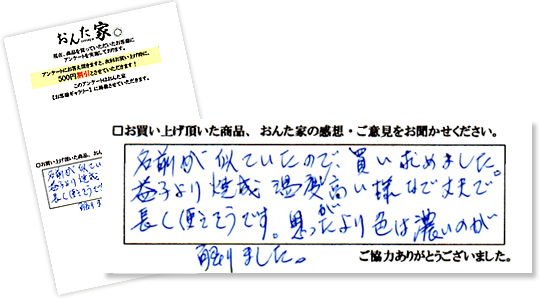 おんた家。
現在、商品を買っていただいたお客様に
アンケートを実施しております。
アンケートにお答え頂きますと、次回お買い上げ時に、
500円割引とさせていただきます!
このアンケートはおんた家
【お客様ギャラリー】に掲載させていただきます。
□お買い上げ頂いた商品、おん
名前が似てい
益子より焼成
長く使えそうです
解りま
□お買い上げ頂いた商品、おんた家の感想・ご意見をお聞かせください。
名前が似ていたので、買い求めました。
益子より焼成温度が高い様なで丈夫で
長く使えそうです。思ったより色は濃いのが
解りました。
ご協力ありがとうございました。